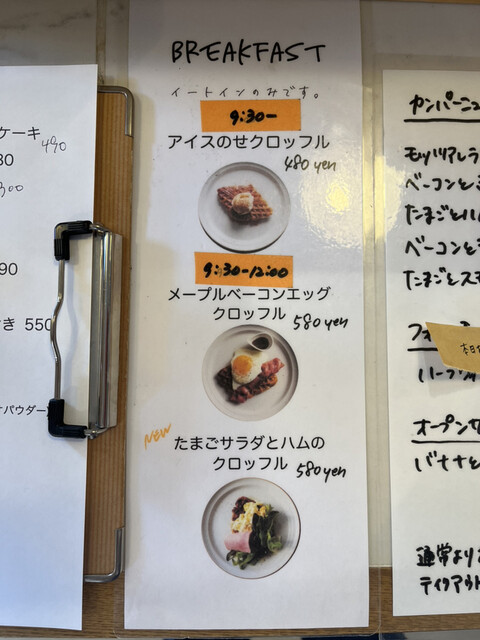 ケーキ 490
80
300
90
き 550
パウダー
BREAKFAST
イートインのみです。
9:30-
アイスのせクロッフル
480 yen
9:30-12:00
メープルベーコンエッグ
クロッフル 580 yen
NEW
たまごサラダとハムの
クロッフル 580 yen
カンパーニュ
モッツァレラ
ベーコンと
たまごとハム
ベーコンと
たまごとス
フォ
本日
ハーフ
オープンサ
バナナと
通常より
テイクアウト